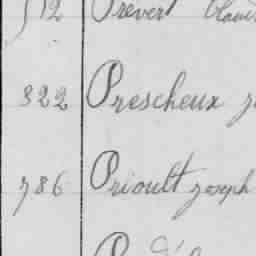 512 Prevert
322 Prescheux
786 Prioult Joseph